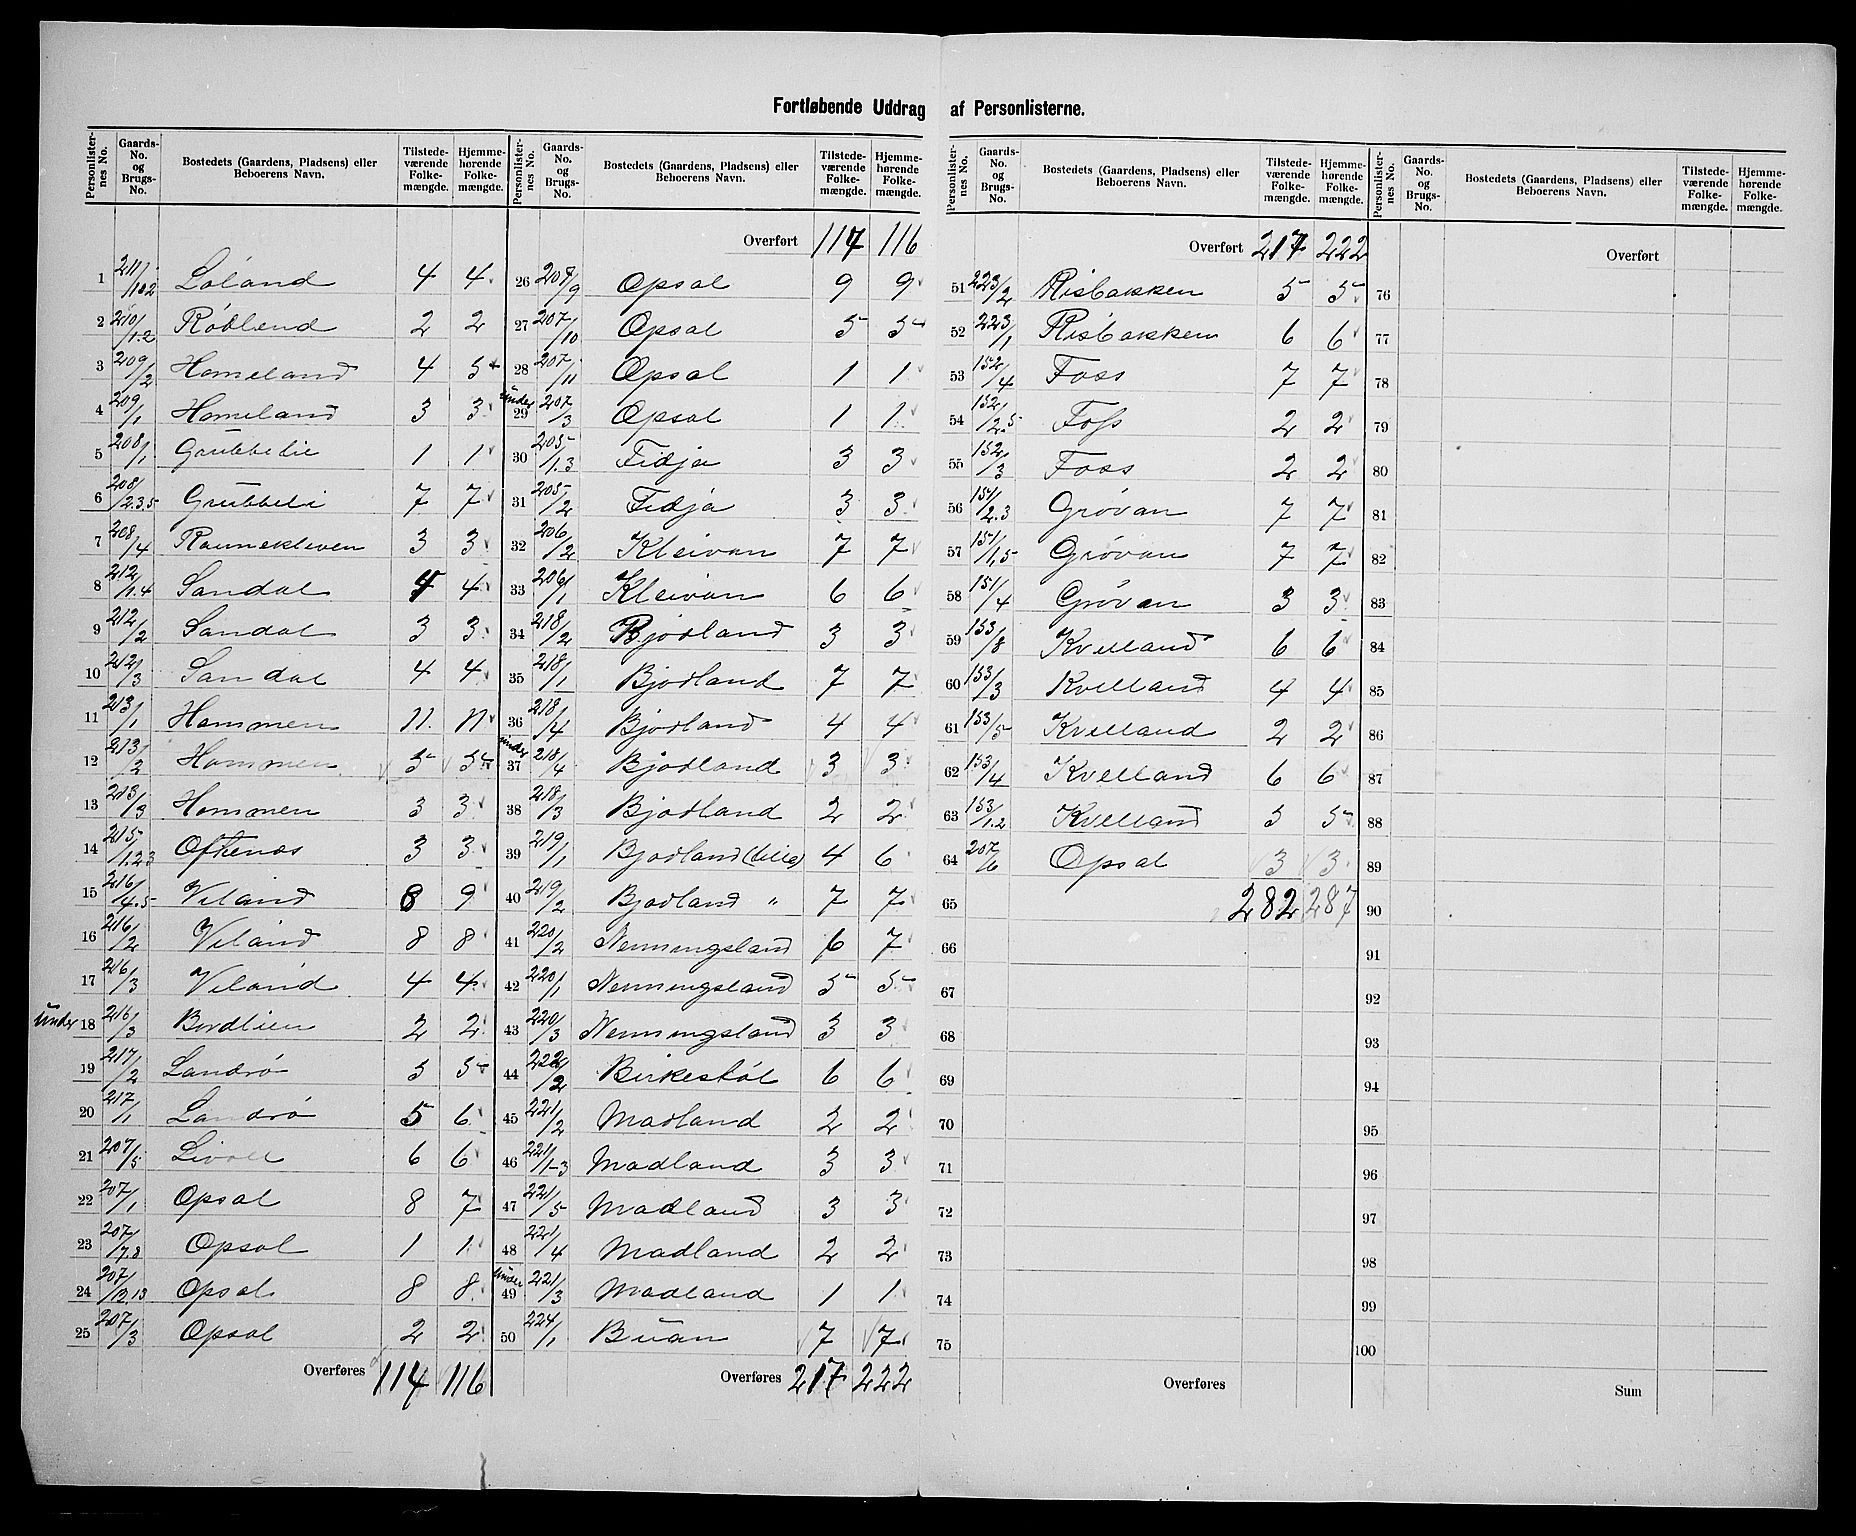 Fortløbende Uddrag af Personlisterne.
Personlister-nes No. | Gaards-No. og Brugs-No. | Bostedets (Gaardens, Pladsens) eller Beboerens Navn. | Tilstede-værende Folke-mængde. | Hjemme-hørende Folke-mængde.
1 211/1.2 Løland 4 4
2 210/1.2 Røbland 2 2
3 209/2 Homeland 4 5
4 209/1 Homeland 3 3
5 208/1 Grubbelie 1 1
6 208/2.3.5 Grubbeli 7 7
7 208/4 Raunekleven 3 3
8 212/1.4 Sandal 4 4
9 212/2 Sandal 3 3
10 212/3 Sandal 4 4
11 213/1 Hommen 11 11
12 213/2 Hommen 5 5
13 213/3 Hommen 3 3
14 215/1.2.3 Oftenes 3 3
15 216/4.5 Viland 8 9
16 216/2 Viland 8 8
17 216/3 Viland 4 4
under 18 216/3 Bordlien 2 2
19 217/2 Landrø 5 5
20 217/1 Landrø 5 6
21 207/5 Livoll 6 6
22 207/1 Opsal 8 7
23 207/7.8 Opsal 1 1
24 207/ Opsal 8 8
25 207/3 Opsal 2 2
Overføres 114 116
Personlister-nes No. | Gaards-No. og Brugs-No. | Bostedets (Gaardens, Pladsens) eller Beboerens Navn. | Tilstede-værende Folke-mængde. | Hjemme-hørende Folke-mængde.
Overført 114 116
26 207/9 Opsal 9 9
27 207/10 Opsal 5 5
28 207/11 Opsal 1 1
under 29 207/3 Opsal 1 1
30 205/1.3 Fidja 3 3
31 205/2 Fidja 3 3
32 206/2 Kleivan 7 7
33 206/1 Kleivan 6 6
34 218/2 Bjodland 3 3
35 218/1 Bjodland 7 7
36 218/4 Bjodland 4 4
under 37 218/4 Bjodland 3 3
38 218/3 Bjodland 2 2
39 219/1 Bjodland (lille) 4 6
40 219/2 Bjodland " 7 7
41 220/2 Nenningsland 6 7
42 220/1 Nenningsland 5 5
43 220/3 Nenningsland 3 3
44 222/2 Birkestøl 6 6
45 221/2 Madland 2 2
46 221/1-3 Madland 3 3
47 221/5 Madland 3 3
48 221/4 Madland 2 2
under 49 221/3 Madland 1 1
50 224/1 Buan 7 7
Overføres 217 222
Personlister-nes No. | Gaards-No. og Brugs-No. | Bostedets (Gaardens, Pladsens) eller Beboerens Navn. | Tilstede-værende Folke-mængde. | Hjemme-hørende Folke-mængde.
Overført 217 222
51 223/2 Risbakken 5 5
52 223/1 Risbakken 6 6
53 152/4 Foss 7 7
54 152/2.5 Foss 2 2
55 152/3 Foss 2 2
56 151/2.3 Grøvan 7 7
57 151/1,5 Grøvan 7 7
58 151/4 Grøvan 3 3
59 153/8 Kvelland 6 6
60 153/3 Kvelland 4 4
61 153/5 Kvelland 2 2
62 153/4 Kvelland 6 6
63 153/1.2 Kvelland 5 5
64 207/6 Opsal 3 3
65 282 287
66
67
68
69
70
71
72
73
74
75
Overføres
Personlister-nes No. | Gaards-No. og Brugs-No. | Bostedets (Gaardens, Pladsens) eller Beboerens Navn. | Tilstede-værende Folke-mængde. | Hjemme-hørende Folke-mængde.
Overført
76
77
78
79
80
81
82
83
84
85
86
87
88
89
90
91
92
93
94
95
96
97
98
99
100
Sum